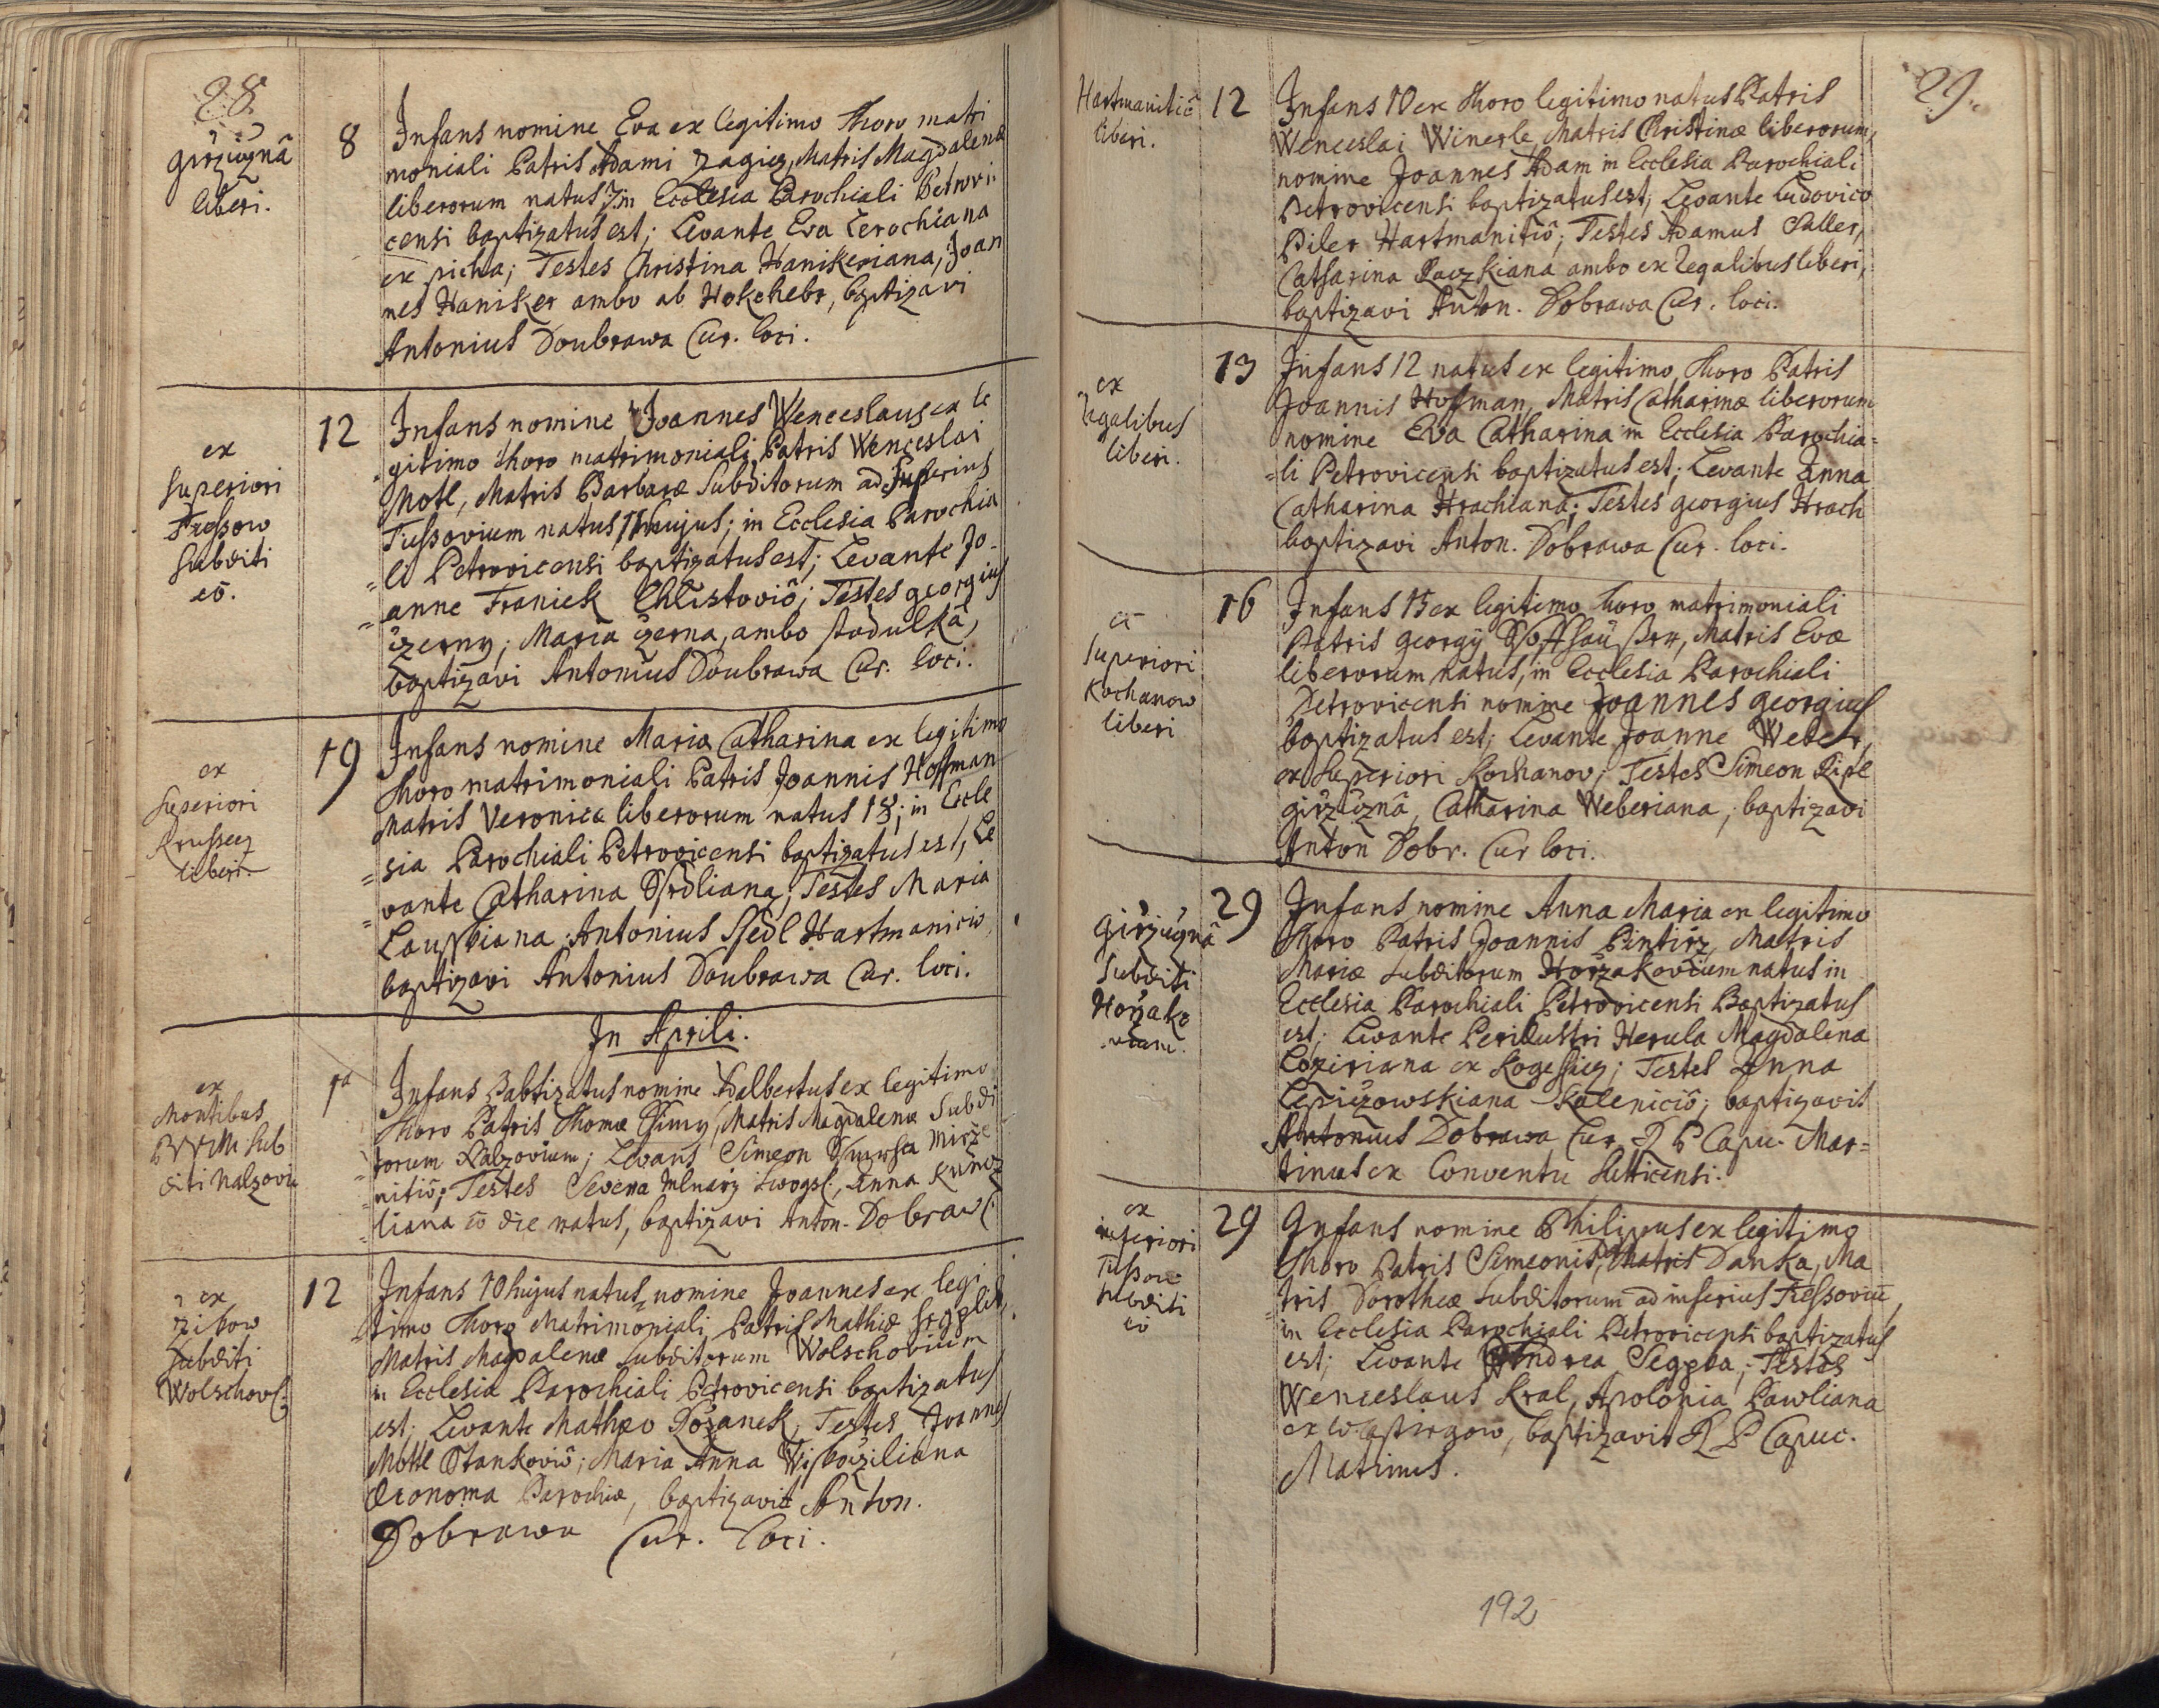 28
Girzicznâ
liberi.
8
Infans nomine Eva ex legitimo Thoro matri
moniali Patris Adami Zagicz, Matris Magdalenæ
liberorum natus 7 in Ecclesia Parochiali Petrovi:
censi baptizatus est; Levante Eva Zerochiana
ex picha; Testes Christina Hanikeriana, Joan
nes Haniker ambo ab Hokchebr, baptizavi
Antonius Doubrawa Cur. loci.
ex
superiori
Tiessow
subditi
eô.
12
Infans nomine Joannes Wenceslaus ex le
gitimo thoro matrimoniali Patris Wenceslai
Motl, Matris Barbaræ subditorum ad superius
Tiessovium natus 11 hujus; in Ecclesia Parochia
=li Petrovicensi baptizatus est; Levante Jo-
=anne Franiek Chlistoviô; Testes Georgius
czerny; Maria czerna, ambo stodulkâ,
baptizavi Antonius Doubrawa Cur. loci.
ex
superiori
Krussecz
liberi
19
Infans nomine Maria Catharina ex legitimo
Thoro matrimoniali Patris Joannis Hoffman
Matris Veronicæ liberorum natus 18; in Eccle
=sia Parochiali Petrovicensi baptizatus est, Le
=vante Catharina Ssedliana; Testes Maria
Antonius Ssedl Hartmaniciô,
baptizavi Antonius Doubrawa Cur. loci.
In Aprili.
ex
Montibus
sub
diti Nalzoviu
1ª
Infans Babtizatus nomine Adalbertus ex legitimo
Thoro Patris Thomæ Matris Magdalenæ subdi
torum Nalzovium; Levans Simeon
nitiô; Testes Mlnarz Anna
liana eô die natus, baptizavi Anton. Dobraw C
ex
zikow
subditi
Wolschovs.
12
Infans 10 hujus natus nomine Joannes ex legi
timo Thoro Matrimoniali Patris Mathiæ
Matris Magdalenæ subditorum Wolschovium
in Ecclesia Parochiali Petrovicensi baptizatus
est; Levante Mathæo Pozanek; Testes Joannes
Mottl Stankoviô; Maria Anna
Œconoma Parochiæ, baptizavit Anton.
Dobrawa Cur. loci.
29.
Hartmanitiô
liberi.
12
Infans 10 ex Thoro legitimo natus Patris
Wenceslai Winerle, Matris Christinæ liberorum,
nomine Joannes Adam in Ecclesia Parochiali
Petrovicensi baptizatus est, Levante Ludovico
Piler Hartmanitiô; Testes Adamus Saller,
Catharina Raczkiana ambo ex Regalibus liberi,
baptizavi Anton. Dobrawa Cur. loci.
ex
Regalibus
liberi.
13
Infans 12 natus ex legitimo Thoro Patris
Joannis Hofman, Matris Catharinæ liberorum
nomine Eva Catharina in Ecclesia Parochia=
=li Petrovicensi baptizatus est; Levante Anna
Catharina Hrachiana; Testes Georgius Hrach
baptizavi Anton. Dobrawa Cur. loci.
ex
superiori
Kochanow
liberi
16
Infans 15 ex legitimo thoro matrimoniali
Patris Georgij Matris Evæ
liberorum natus, in Ecclesia Parochiali
Petrovicensi nomine Joannes Georgius
baptizatus est; Levante Joanne Weber,
ex superiori Kochanov; Testes Simeon
girzicznâ, Catharina Weberiana, baptizavi
Anton Dobr. Cur loci.
Girzicznâ
subditi
Horzako
viam.
29
Infans nomine Anna Maria ex legitimo
Thoro Patris Joannis Pintirz, Matris
Mariæ subditorum Horzakovicum natus in
Ecclesia Parochiali Petrovicensi Baptizatus
est; Levante Perillustri Herula Magdalena
Loziriana ex Rogessicz; Testes Anna
Kaleniciô; baptizavit
Antonius Dobrawa Cur. R P Capu. Mar=
tinus ex Conventu Sutticensi.
ex
inferiori
Tiessow
subditi
eô
29
Infans nomine Philipus ex legitimo
thoro Patris Simeonis, Matris Danka, Ma
=tris Dorotheæ subditorum ad inferius Tiessoviu,
in Ecclesia Parochiali Petrovicensi baptizatus
est; Levante Andrea Seggra; Testes
Wenceslaus Kral, Apolonia Pawliana
ex baptizavit R P Capuc.
Matinus.
192